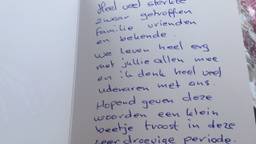 Heel veel sterkte
zwaar getroffen
familie vrienden
en bekende.
we leven heel erg
met jullie allen mee
en ik denk heel veel
udenaren met ons.
Hopend geven deze
woorden een klein
beetje troost in deze
zeer droevige periode.